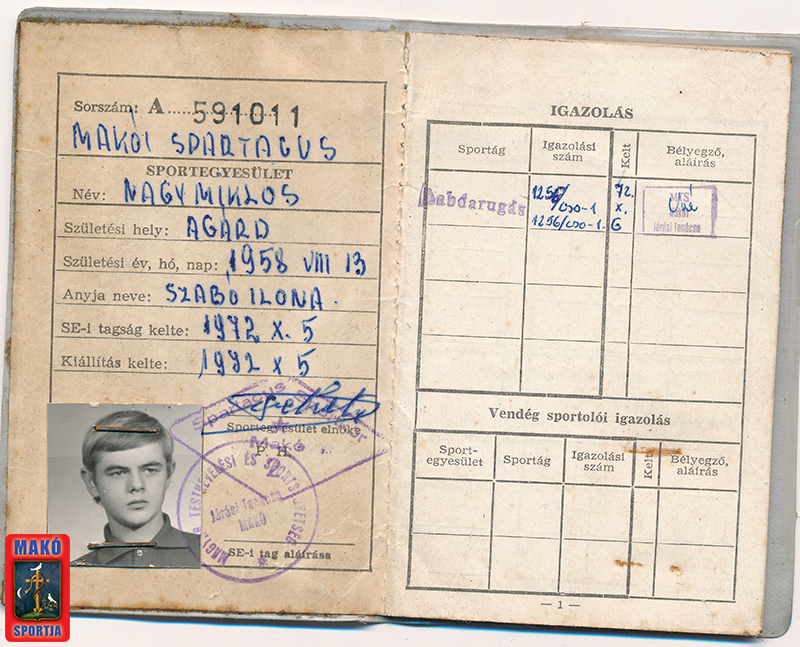 Sorszám: A 591011
MAKÓI SPARTACUS
SPORTEGYESÜLET
Név: NAGY MIKLOS
Születési hely: AGÁRD
Születési év, hó, nap: 1958 VIII 13
Anyja neve: SZABÓ ILONA.
SE-i tagság kelte: 1972 X. 5
Kiállítás kelte: 1972 X 5
Spartacus
Makó
Sportegyesület elnöke
P. H.
MAGYAR TESTNEVELÉSI ÉS SPORTSZÖVETSÉG
Járási Tanácsa
MAKÓ
SE-i tag aláírása
MAKÓ
SPORTJA
IGAZOLÁS
Sportág Igazolási szám Kelt Bélyegző, aláírás
Labdarugás 1256/cso-1 72.
X.
1256/cso-1. 6
Járási Tanácsa
Vendég sportolói igazolás
Sport-egyesület Sportág Igazolási szám Kelt Bélyegző, aláírás
— 1 —